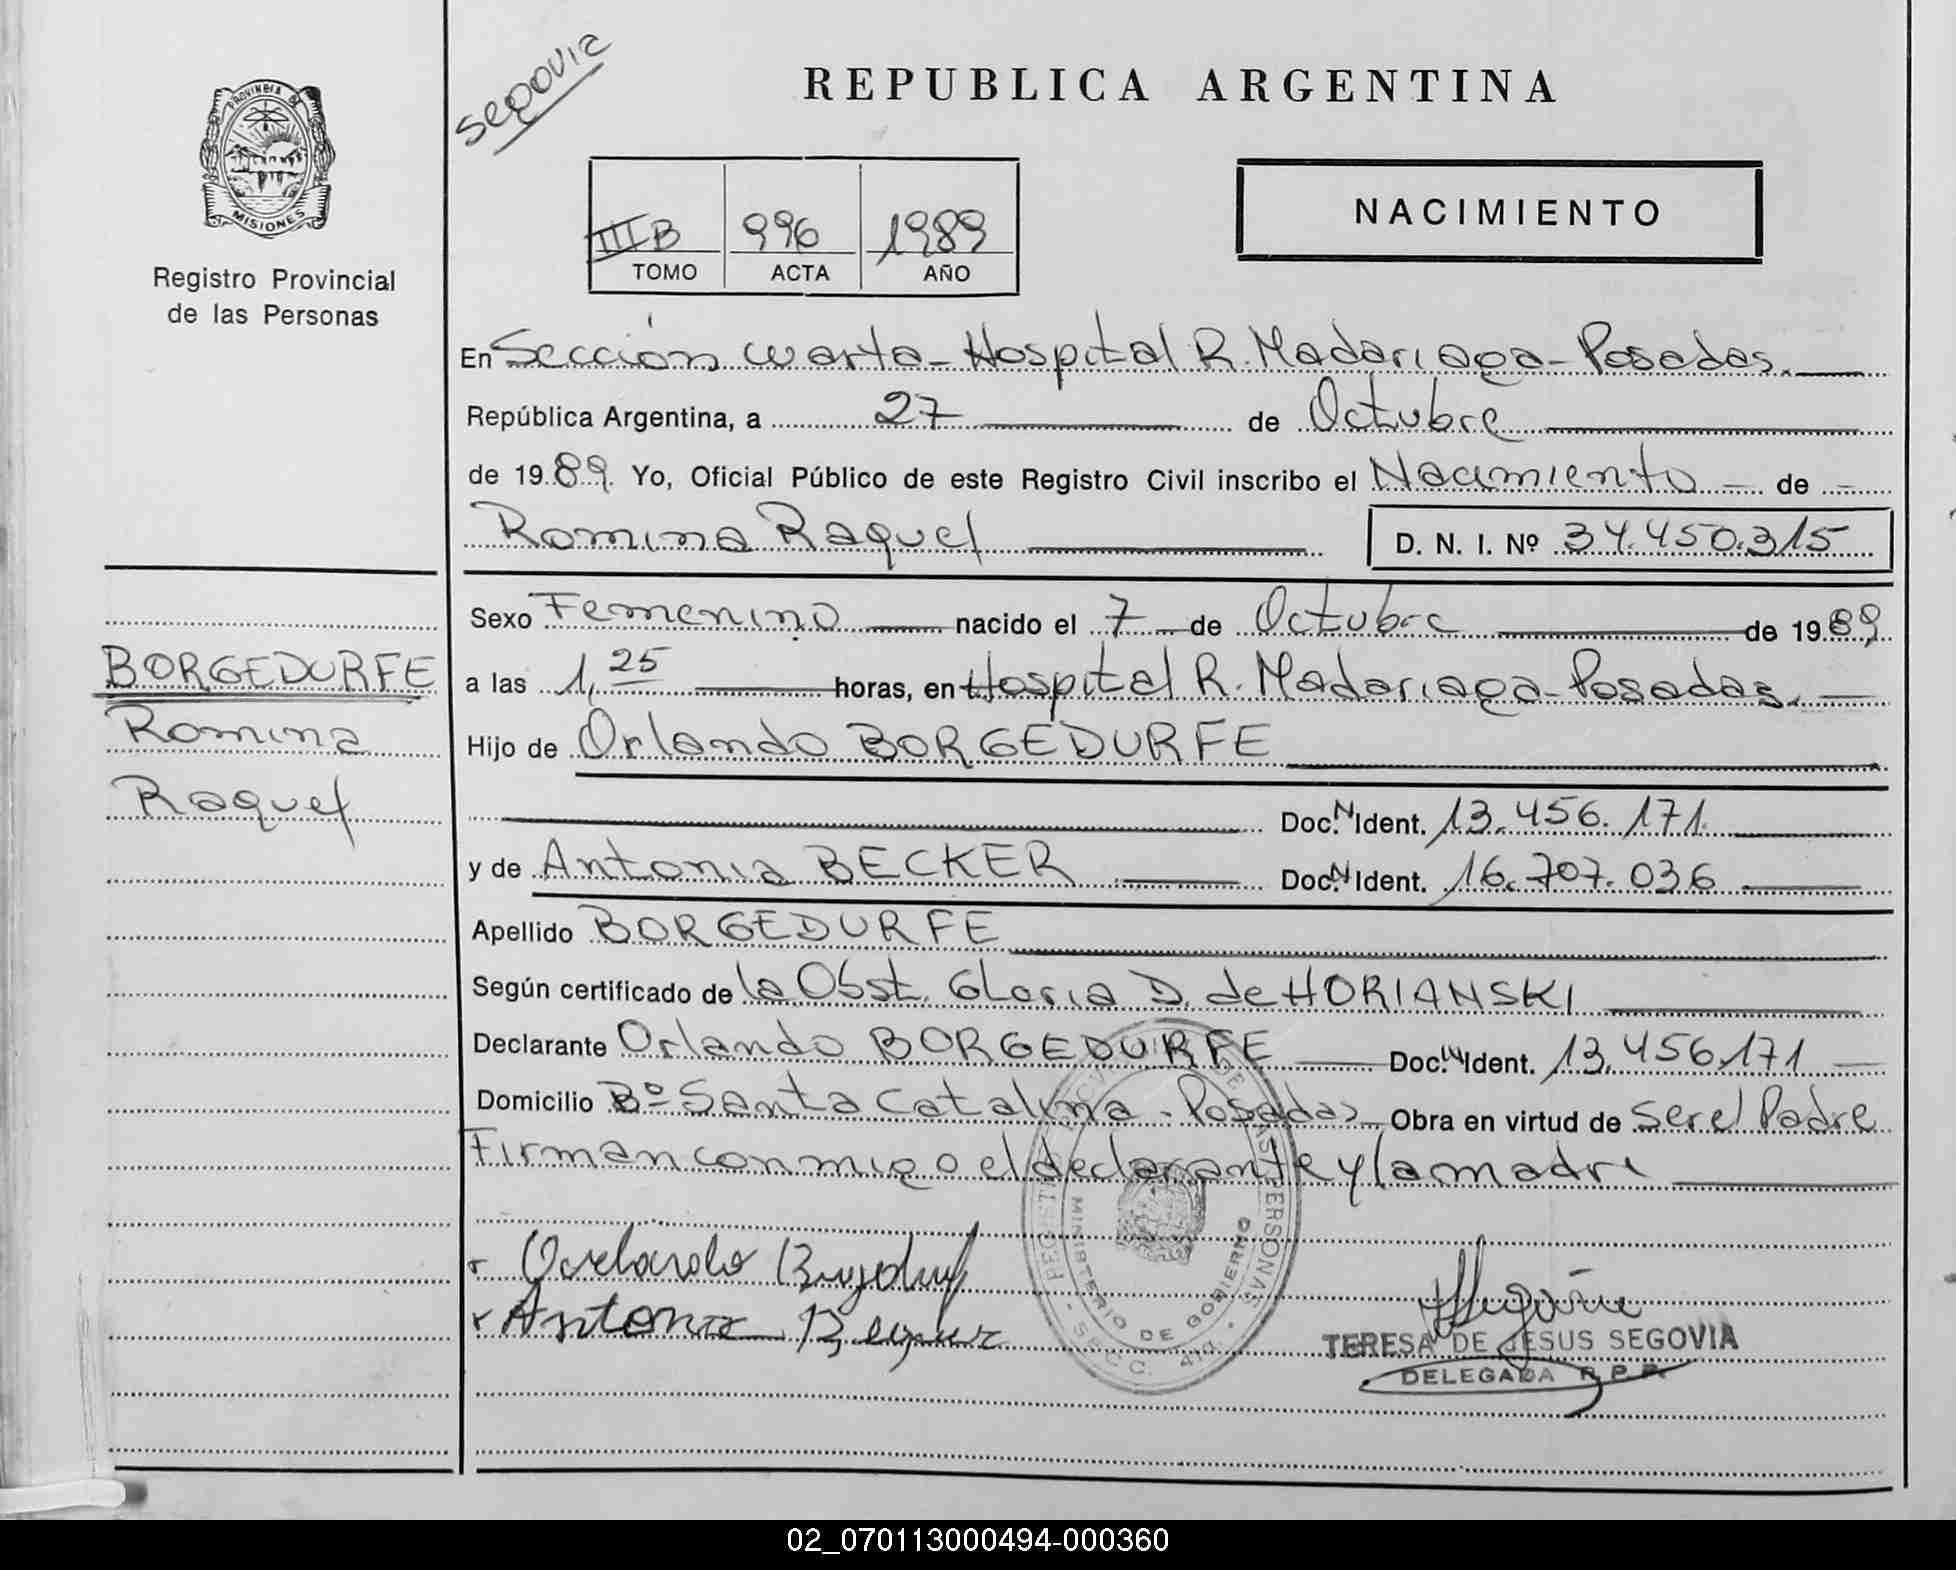 PROVINCIA DE
MISIONES
Registro Provincial
de las Personas
BORGEDURFE
Romina
Raquel
Segovia
REPUBLICA ARGENTINA
III B 996 1989
TOMO ACTA AÑO
NACIMIENTO
En Sección cuarta - Hospital R. Madariaga - Posadas.
República Argentina, a 27 de Octubre
de 1989. Yo, Oficial Público de este Registro Civil inscribo el Nacimiento de
Romina Raquel D. N. I. Nº 34.450.315
Sexo Femenino nacido el 7 de Octubre de 1989
a las 1,25 horas, en Hospital R. Madariaga - Posadas.
Hijo de Orlando BORGEDURFE
Doc. N Ident. 13.456.171.
y de Antonia BECKER Doc. N Ident. 16.707.036
Apellido BORGEDURFE
Según certificado de la Obst. Gloria D. de HORIANSKI
Declarante Orlando BORGEDURFE Doc. N Ident. 13.456.171
Domicilio Bº Santa Catalina - Posadas Obra en virtud de ser el Padre
Firman conmigo el declarante y la madre
REGISTRO PROVINCIAL DE LAS PERSONAS
MINISTERIO DE GOBIERNO
SECC. 4ta.
Antonia
TERESA DE JESUS SEGOVIA
DELEGADA R. P. P.
02_070113000494-000360